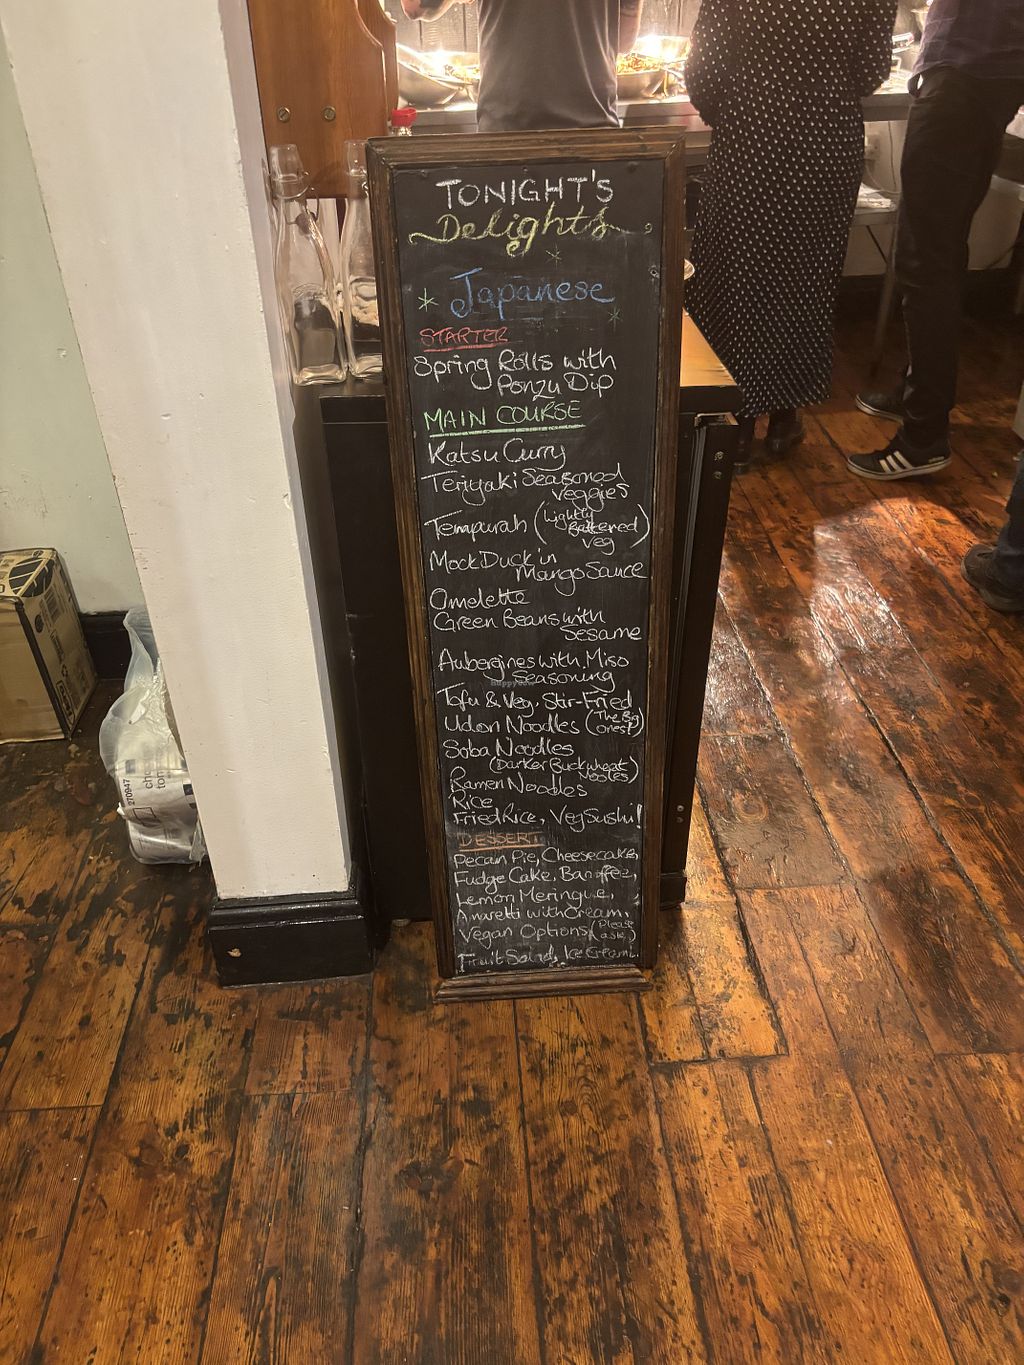 TONIGHT'S
Delights
Japanese
STARTER
Spring Rolls with
Ponzu Dip
MAIN COURSE
Katsu Curry
Teriyaki Seasoned
Veggies
Tempurah (Lightly
Battered
Veg)
Mock Duck in
Mango Sauce
Omelette
Green Beans with
Sesame
Aubergines with Miso
Seasoning
Tofu & Veg, Stir-Fried
Udon Noodles (The Big
Ones!)
Soba Noodles
(Darker Buckwheat
Noodles)
Ramen Noodles
Rice
Fried Rice, Veg Sushi!
DESSERT
Pecan Pie, Cheesecake,
Fudge Cake, Banoffee,
Lemon Meringue,
Amaretti with Cream,
Vegan Options (Please
ask)
Fruit Salad, Ice Cream.
270947